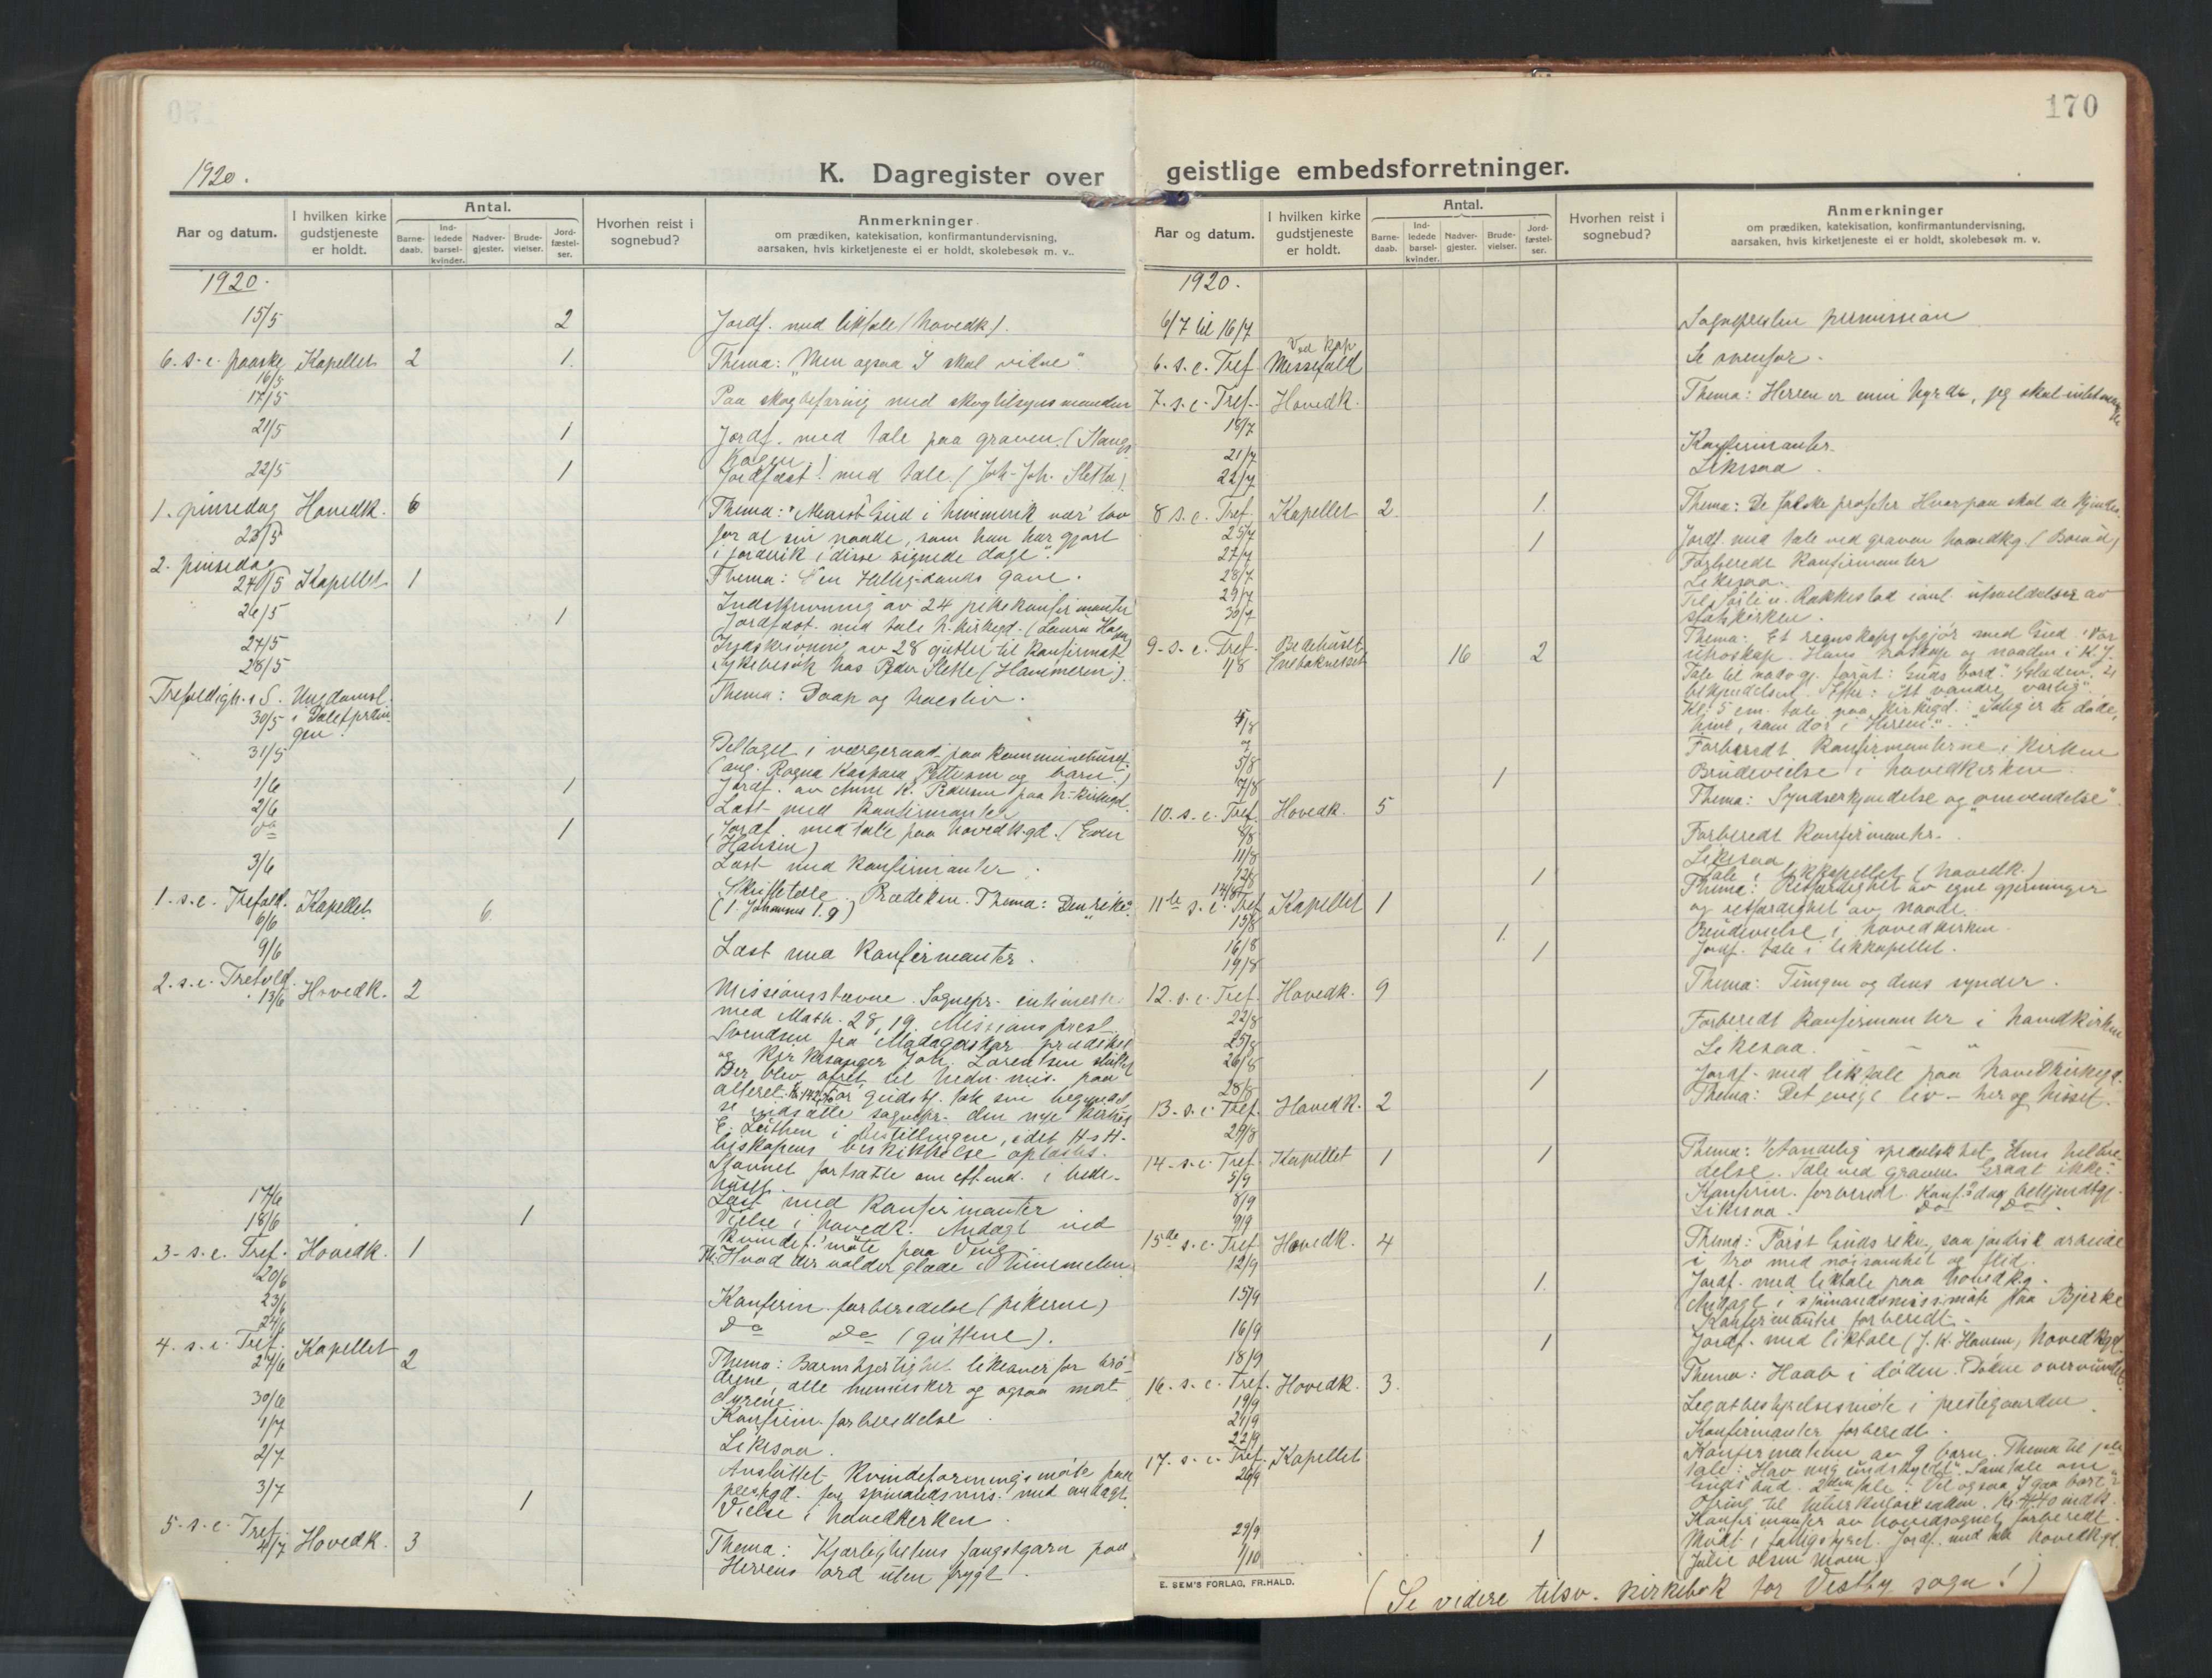 170
1920.
K. Dagregister over geistlige embedsforretninger.
Aar og datum.
I hvilken kirke gudstjeneste er holdt.
Antal.
Barne-daab.
Ind-ledede barsel-kvinder.
Nadver-gjester.
Brude-vielser.
Jord-fæstel-ser.
Hvorhen reist i sognebud?
Anmerkninger
om prædiken, katekisation, konfirmantundervisning,
aarsaken, hvis kirketjeneste ei er holdt, skolebesøk m. v..
1920.
15/5 2 Jordf. med liktale (hovedk).
6. s. e. paaske Kapellet 2 1. Thema: "Men ogsaa I skal vidne"
16/5
17/5 Paa skogbefaring med skogtilsynsmanden
21/5 1 Jordf. med tale paa graven. (Stangs
kogen.)
22/5 1 Jordfæst. med tale. (Joh. Joh. Sletta)
1. pinsedag Hovedk. 6 Thema: "Men Gud i himmerik vær' lov
23/5 for al sin naade, som han har gjort
i jorderik i disse signede dage".
2. pinsedag
24/5 Kapellet 1 Thema: Den Hellig-aands gave.
26/5 Indskrivning av 24 pikekonfirmanter
1 Jordfæst. med tale h. kirkegd. (Laura
27/5 Indskrivning av 28 gutter til konfirmat.
28/5 Sykebesøk hos Peder Slette (Hammeren).
Trefoldigh. s S. Ungdomsl. Thema: Daap og troesliv.
30/5 i
gen.
31/5 Deltaget i værgeraad paa kommunehuset
(ang. Ragna Kaspara Pettersen og barn.)
1/6 1 Jordf. av Anne K. paa h-kirkegd.
2/6 Læst med konfirmanter
do 1 Jordf. med tale paa hovedk.gd. (Even
Hansen)
3/6 Læst med konfirmanter.
1. s. e. Trefold. Kapellet 6. Skriftetale. Prædiken. Thema: Den rike.
6/6 (1. Johannes 1.9)
9/6 Læst med konfirmanter.
2. s. e. Trefold.
13/6 Hovedk. 2 Missionsstevne. Sognepr. intimerte
med Math. 28,19. Missionsprest
Svendsen fra Madagaskar prædiket
og kirkesanger Joh. Lorentsen sluttet
Der blev ofret til hedn. mis. paa
alteret. Før gudstj.
sognepr. den nye kirketj.
i bestillingen, idet H. H.
biskopens beskikkelse oplæstes.
Stævnet fortsatte om eft.md. i bede-
huset.
17/6 Læst med konfirmanter
18/6 1 Vielse i hovedk. Andagt ved
kvindef. møte paa Veng
3. s. e. Tref. Hovedk. 1 Th: Hvad der volder glæde i himmelen
20/6
23/6 Konfirm. forberedelse (pikerne)
24/6 do do (guttene).
4. s. e. Tref. Kapellet 2 Thema: Barmhjertighet likeover for brø-
27/6 drene, alle mennesker og ogsaa mot
dyrene.
30/6 Konfirm. forberedelse.
1/7 Likesaa.
2/7 Avsluttet kvindeforeningsmøte paa
prestegd. for sjømandsmis. med andagt.
3/7 1 Vielse i hovedkirken.
5. s. e. Tref.
4/7 Hovedk. 3 Thema: Kjærlighetens fangstgarn paa
Herrens ord uten frygt.
Aar og datum.
I hvilken kirke gudstjeneste er holdt.
Antal.
Barne-daab.
Ind-ledede barsel-kvinder.
Nadver-gjester.
Brude-vielser.
Jord-fæstel-ser.
Hvorhen reist i sognebud?
Anmerkninger
om prædiken, katekisation, konfirmantundervisning,
aarsaken, hvis kirketjeneste ei er holdt, skolebesøk m. v.
1920.
6/7 til 16/7 Sognepresten permission
Ved kap.
6. s. e. Tref. Messefald Se ovenfor.
7. s. e. Tref. Hovedk. Thema: Herren er min hyrde, jeg skal intet mangle
18/7
21/7 Konfirmanter.
22/7 Likesaa.
8 s. e. Tref. Kapellet 2. 1. Thema: De falske profeter. Hvorpaa skal de kjendes.
25/7
27/7 1 Jordf. med tale ved graven hovedkg.
28/7 Forberede konfirmanter
29/7 Likesaa.
30/7 Til Rakkestad
statskirken.
9. s. e. Tref. Bedehuset 16 2 Thema: Et regnskapsopgjør med Gud. Vor
1/8
Kl. 5 em. tale paa kirkegd.: Salig er de døde,
som dør i Herren."
4/8 Forberedt konfirmanterne i kirken
5/8
7/8 1 Brudevielse i hovedkirken.
10. s. e. Tref. Hovedk. 5 Thema: Syndserkjendelse og "omvendelse".
8/8
11/8 Forberedt konfirmanter.
12/8 Likesaa
14/8 1 Tale i likkapellet (hovedk.)
11te s. e. Tref. Kapellet 1 Thema: Retfærdighet av egne gjerninger
15/8 og retfærdighet av naade.
16/8 1. Brudevielse i hovedkirken.
19/8 1 Jordf. tale i likkapellet.
12. s. e. Tref. Hovedk. 9 Thema: Tungen og dens synder.
22/8
25/8 Forberedt konfirmanter i hovedkirken
26/8 Likesaa. " "
28/8 1 Jordf. med liktale paa hovedkirkegd.
13. s. e. Tref. Hovedk. 2 Thema: Det evige liv – her og hisset.
29/8
14. s. e. Tref. Kapellet 1 1 Thema: Aandelig spedalskhet. Dens helbre-
5/9 delse. Tale ved graven. Graat ikke.
8/9 Konfirm. forberedt.
9/9 Likesaa. do do.
15de s. e. Tref. Hovedk. 4 Thema: Først Guds rike, saa jordisk arbeide
12/9 i tro med nøisomhet og flid.
15/9 1. Jordf. med liktale paa hovedkg.
Andagt i sjømandsmiss.møte paa Bjerke
16/9 Konfirmanter forberedt.
18/9 1 Jordf. med liktale (J. K. Hansen) hovedkgd.
16. s. e. Tref. Hovedk. 3. Thema: Haab i døden. Døden overvundet.
19/9
21/9 Legatbestyrelsesmøte i prestegaarden.
22/9 Konfirmanter forberedt.
17. s. e. Tref. Kapellet Konfirmation av 9 barn. Thema til 1ste
26/9 tale: Hav mig undskyldt". Samtale om
Guds bud. 2den tale: Vil ogsaa I gaa bort?"
Ofring til
29/9 Konfirmanter av hovedsognet forberedt.
1/10 1 Møtt i fattigstyret. Jordf. med tale hovedkgd.
(Julie Olsen Moen.)
E. SEM'S FORLAG, FR.HALD.
(Se videre tilsv. kirkebok for Vestby sogn!)